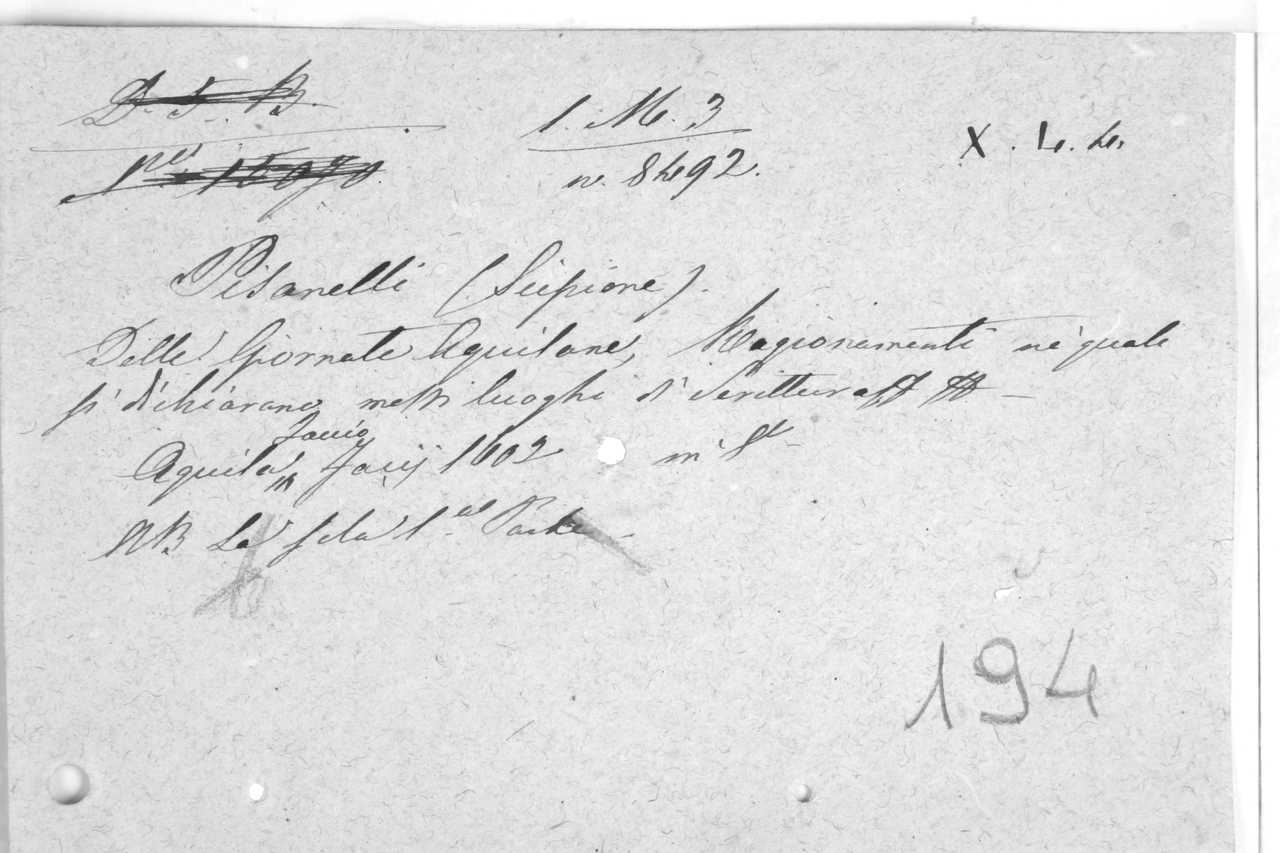 D. S. B.
1. M. 3
X. L. 4.
n. 8492.
Pisanelli (Scipione).
Delle Giornate Aquilane, Ragionamenti ne quale
si dichiarano molti luoghi di Scrittura
Facio
Aquila, Facij 1602 in 8°
NB. La sola 1.a Parte
194